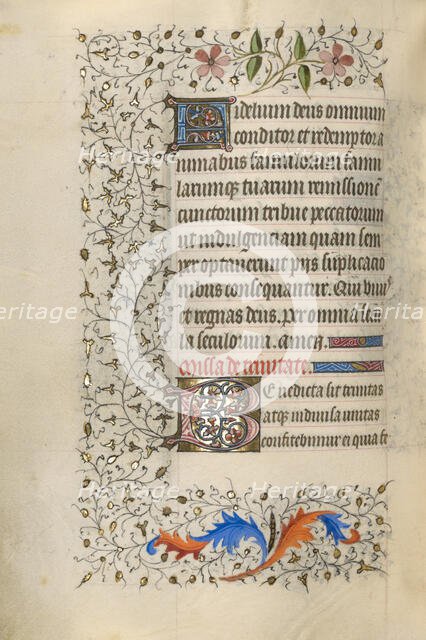 Fidelium deus omnium
conditor et redemptor a
nimabus famulorum famu
larumq tuarum remissione
cunctorum tribue peccatorum
ut indulgenciam quam sem
per optaverunt pijs supplicacio
nibus consequantur. Qui vivis
et regnas deus. Per omnia secu
la seculorum. amen.
Missa de trinitate.
Benedicta sit trinitas
atque indivisa unitas
confitebimur ei quia fe
Heritage
Heritage
Heritage
Heritage
Heritage
Heritage